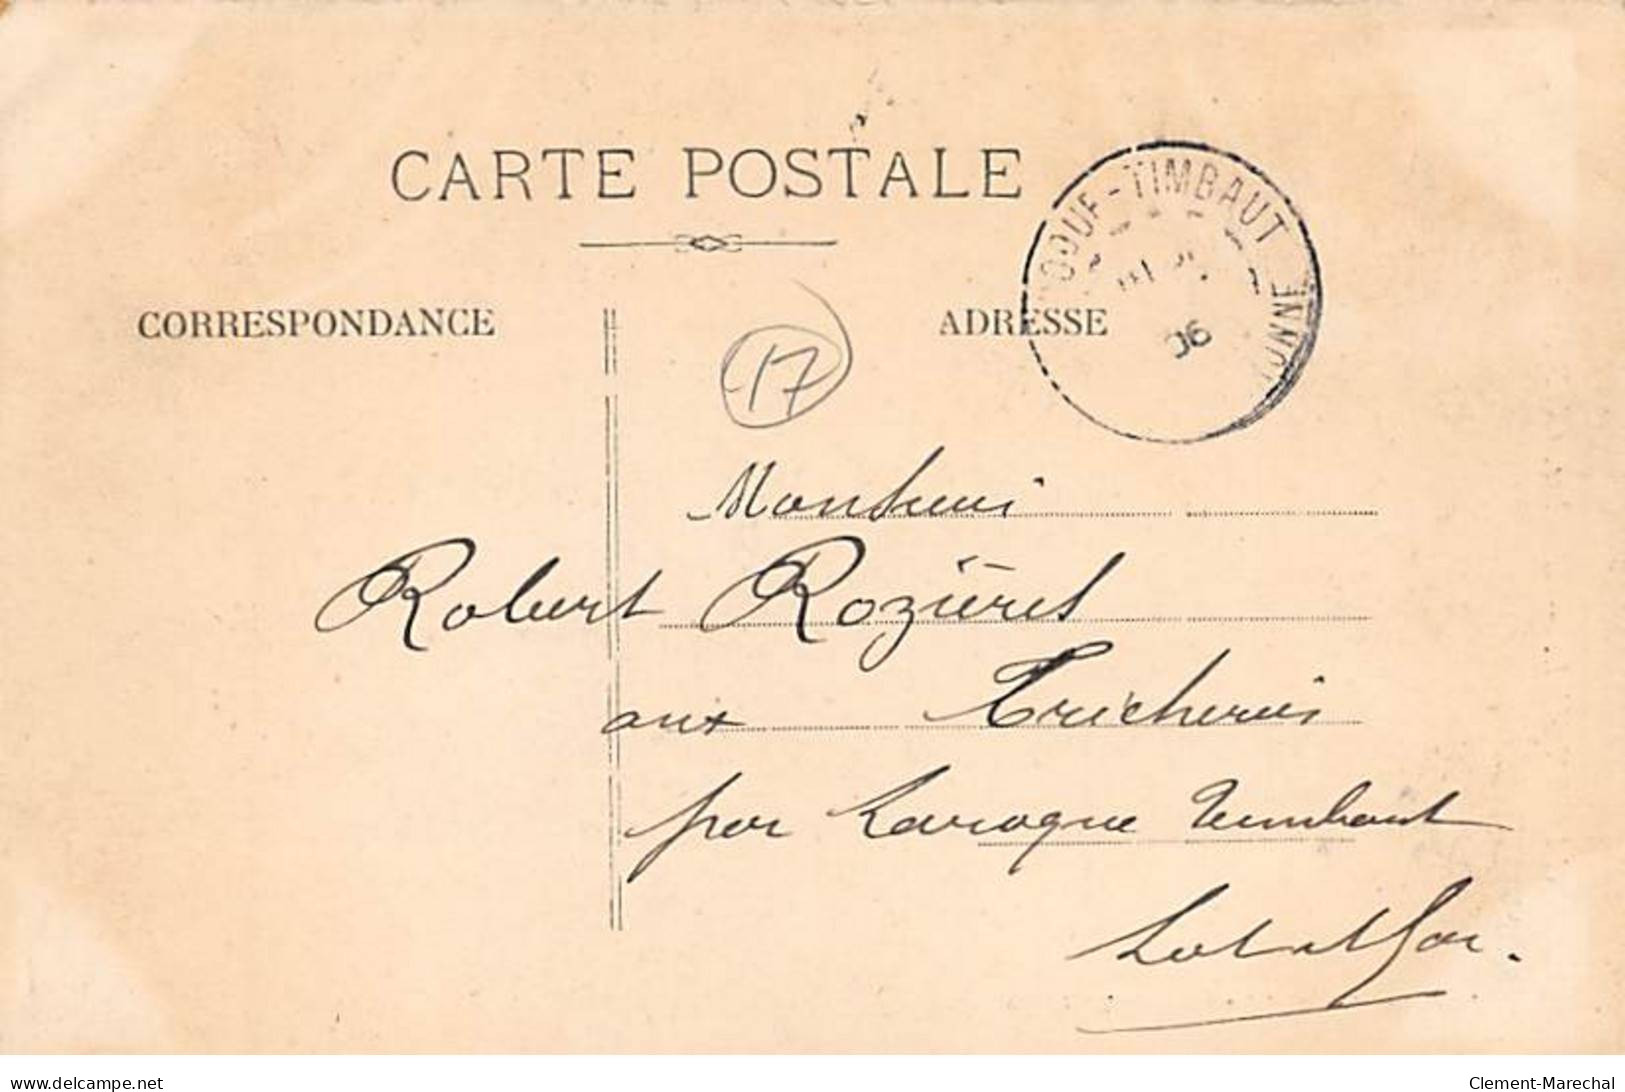 CARTE POSTALE
CORRESPONDANCE
ADRESSE
OQUE-TIMBAUT
ONNE
06
17
Monsieur
Robert Rozières
aux Tricheries
par Laroque Timbaut
Lot et Gar.
delcampe.net
Clement-Marechal